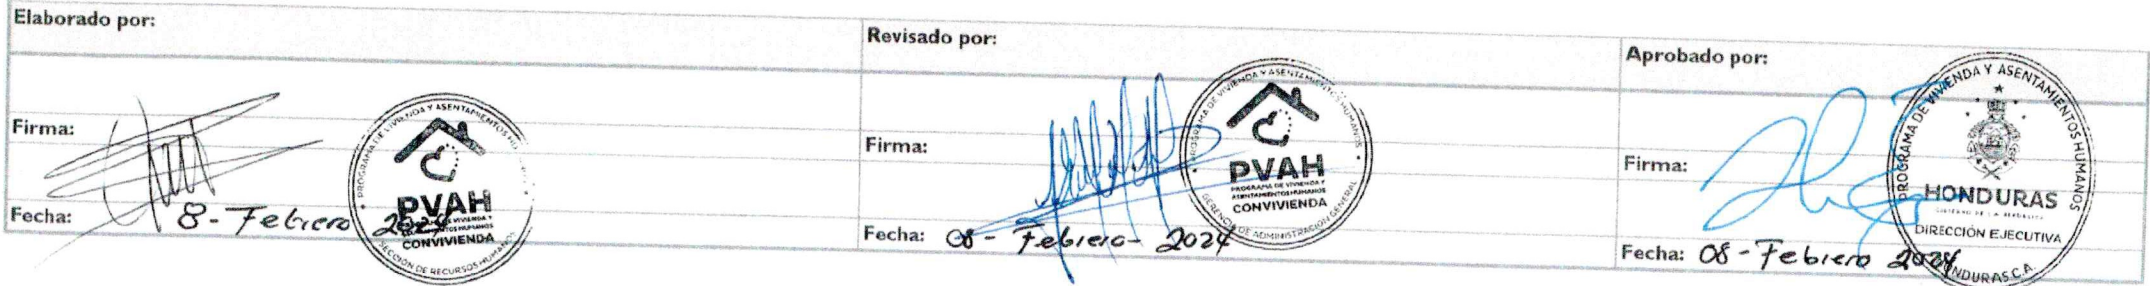 Elaborado por:
Firma:
Fecha: 8 - Febrero 2024
PROGRAMA DE VIVIENDA Y ASENTAMIENTOS
PVAH
CONVIVIENDA
DE RECURSOS HUMANOS
Revisado por:
Firma:
Fecha: 08 - Febrero - 2024
PROGRAMA DE VIVIENDA Y ASENTAMIENTOS HUMANOS
PVAH
PROGRAMA DE VIVIENDA Y
ASENTAMIENTOS HUMANOS
CONVIVIENDA
GERENCIA DE ADMINISTRACIÓN GENERAL
Aprobado por:
Firma:
Fecha: 08 - Febrero 2024
PROGRAMA DE VIVIENDA Y ASENTAMIENTOS HUMANOS
HONDURAS
GOBIERNO DE LA REPÚBLICA
DIRECCIÓN EJECUTIVA
HONDURAS C.A.